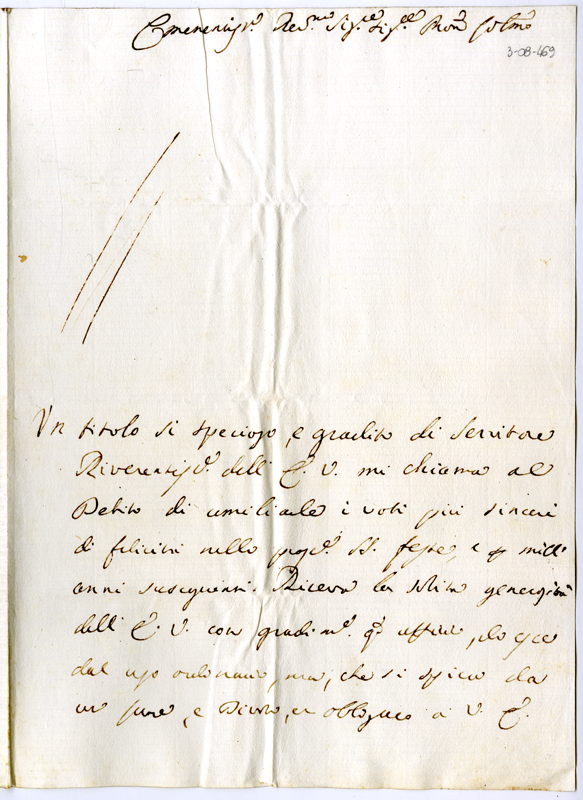 Eminentiss.º Rev.mo Sig.re Sig.re Pron Colmo
3-08-469
Un titolo si specioso, e gradito di Servitore
Riverentiss.º dell' E. V. mi chiama al
Debito di umiliarle i voti più sinceri
di felicità nelle S. feste, e p mill'
anni susseguenti. Riceva la solita generosità
dell' E. V. con gradim.º q.º uffizio,
dal uso ordinario, ma, che si spicca da
un e Divoto, et obligato a V. E.